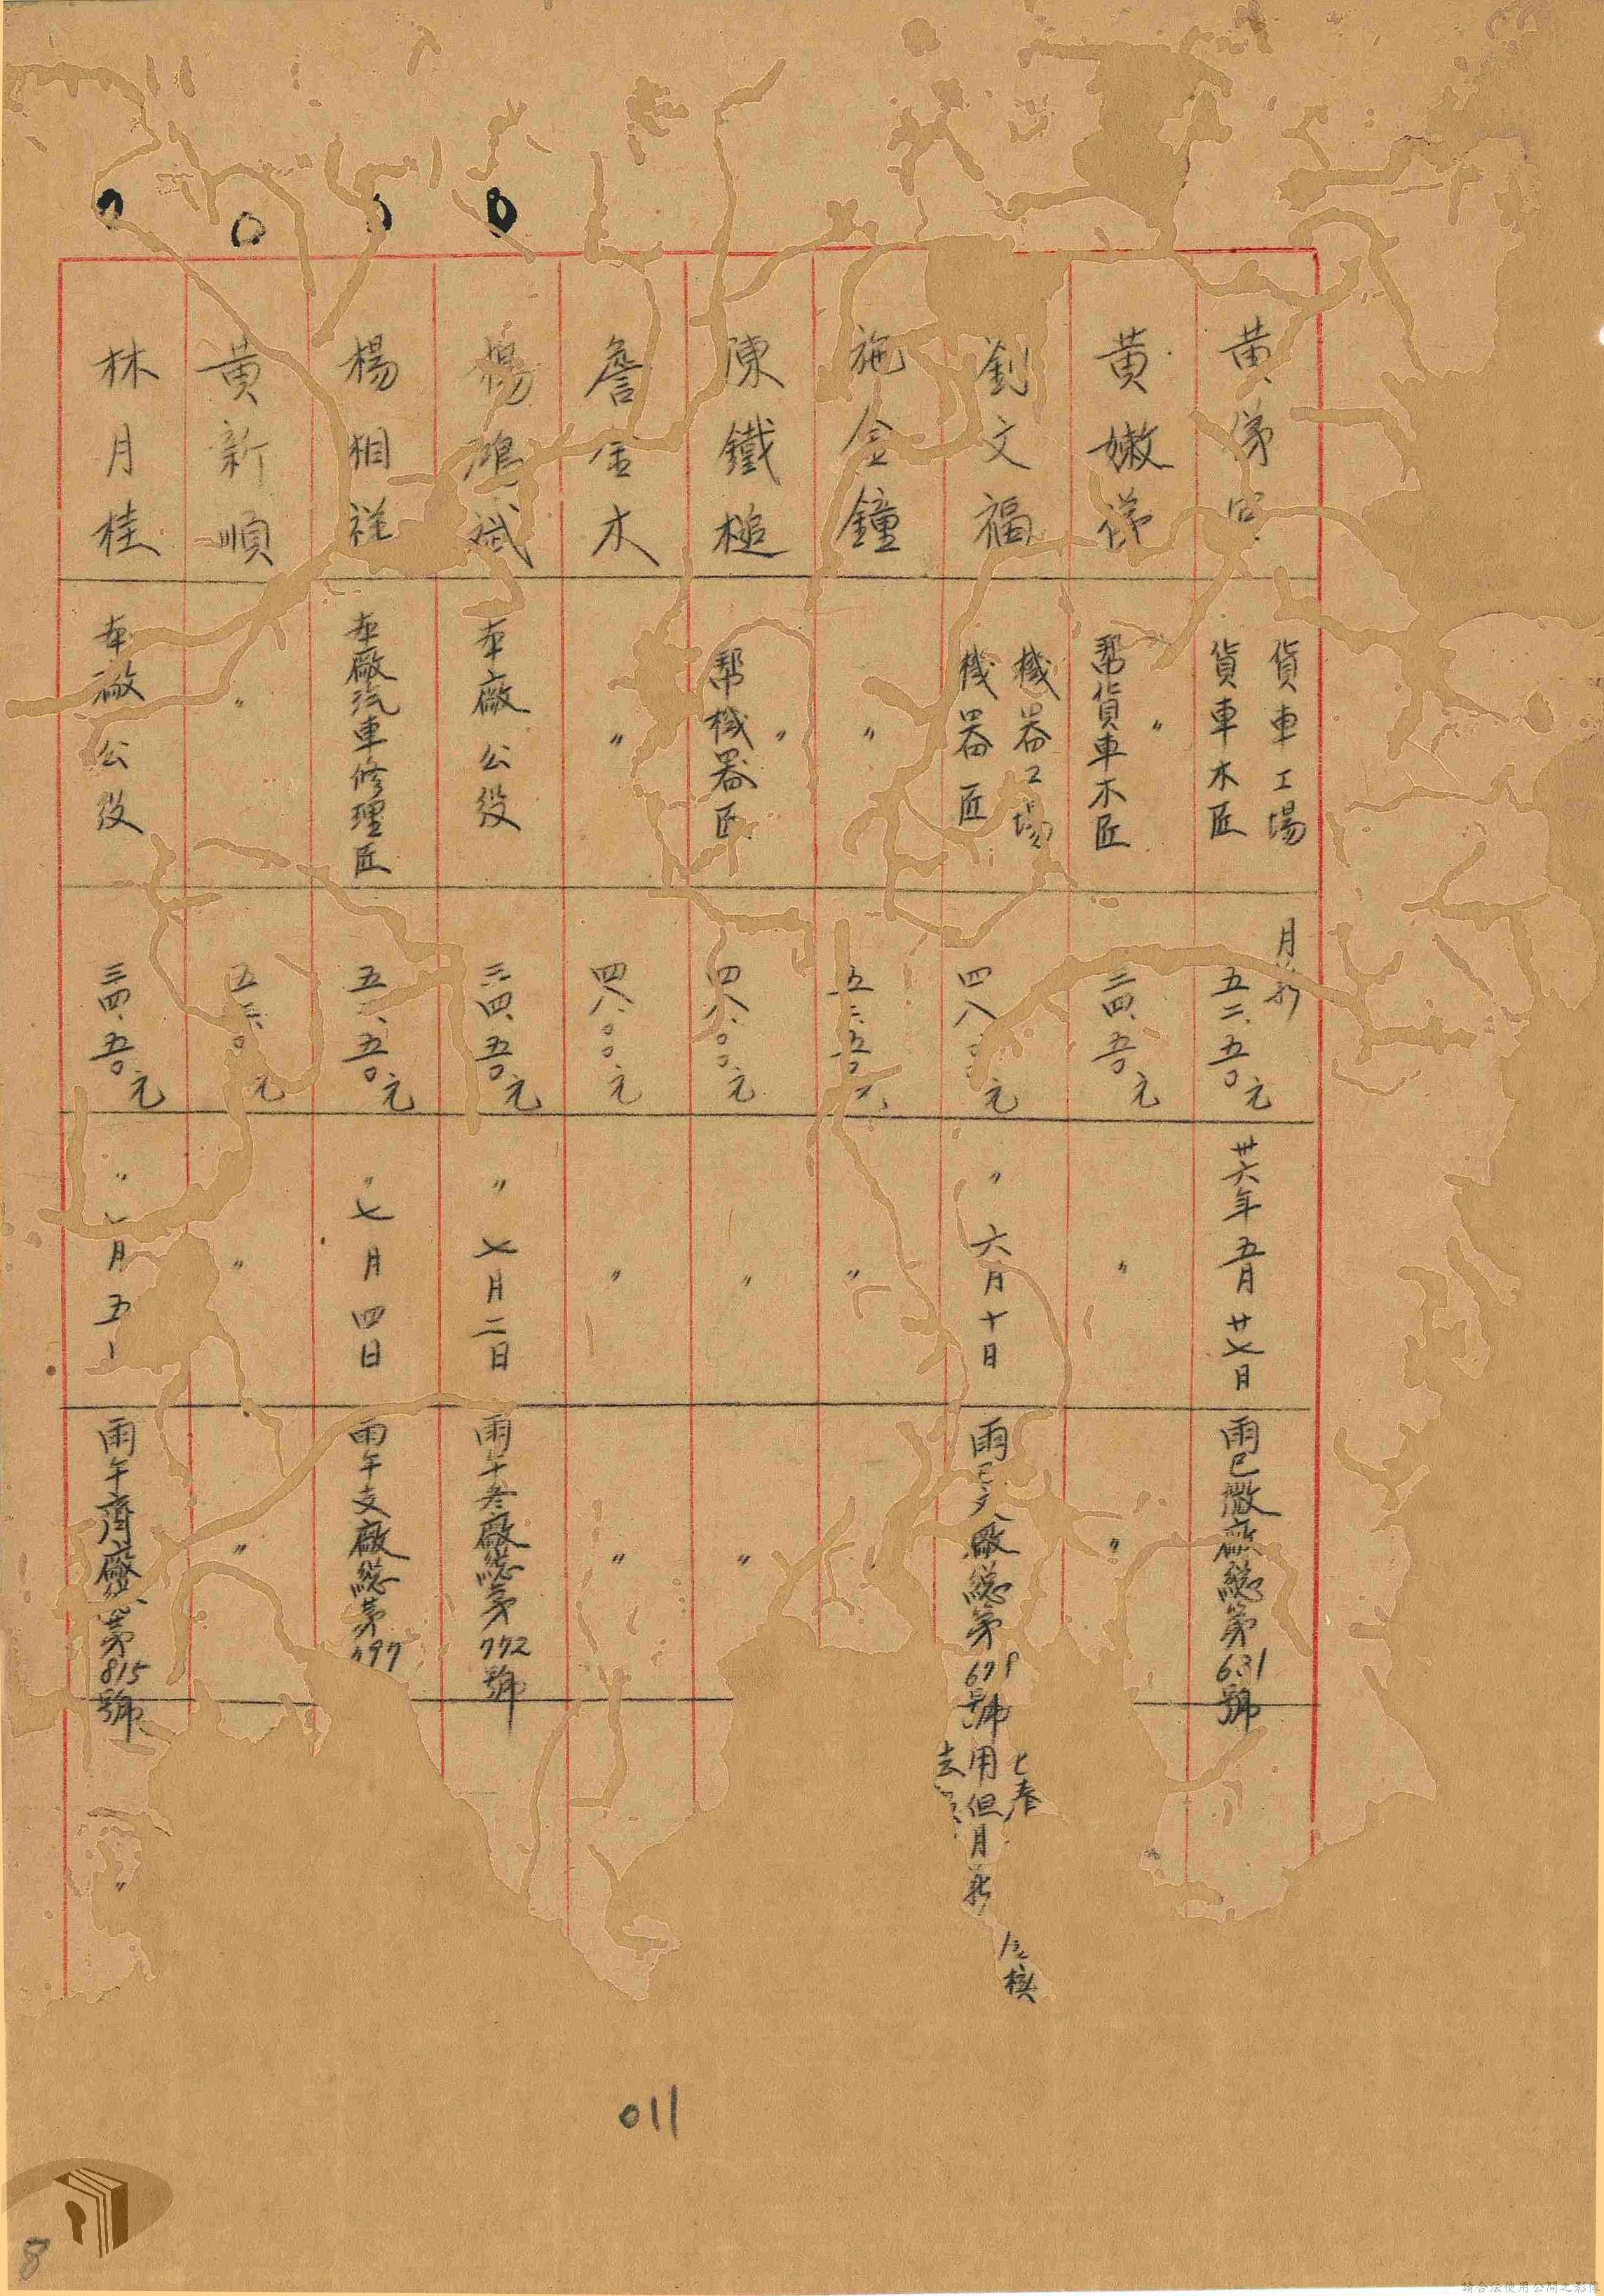 黄
貨車工場
貨車木匠
月薪
五二.五〇元
卅六年五月廿七日
雨巳微廠總第631號
黄嫩
〃
幫貨車木匠
三四.五〇元
〃
〃
劉文福
機器工場
機器匠
四八.〇〇元
〃六月十日
雨巳
廠總第
號
用但月薪
去
核
施金鐘
〃
五二.五〇元
〃
陳鐵槌
〃
幫機器匠
四八.〇〇元
〃
〃
詹金木
〃
四八.〇〇元
〃
〃
楊鴻斌
本廠公役
三四.五〇元
〃七月二日
雨午冬廠總第772號
楊相祥
本廠汽車修理匠
五 .五〇元
〃七月四日
雨午支廠總第
黄新順
〃
五 元
〃
〃
林月桂
本廠公役
三四.五〇元
〃 月五
雨午齊廠總第815號
〃
011
8
請合法使用公開之影像